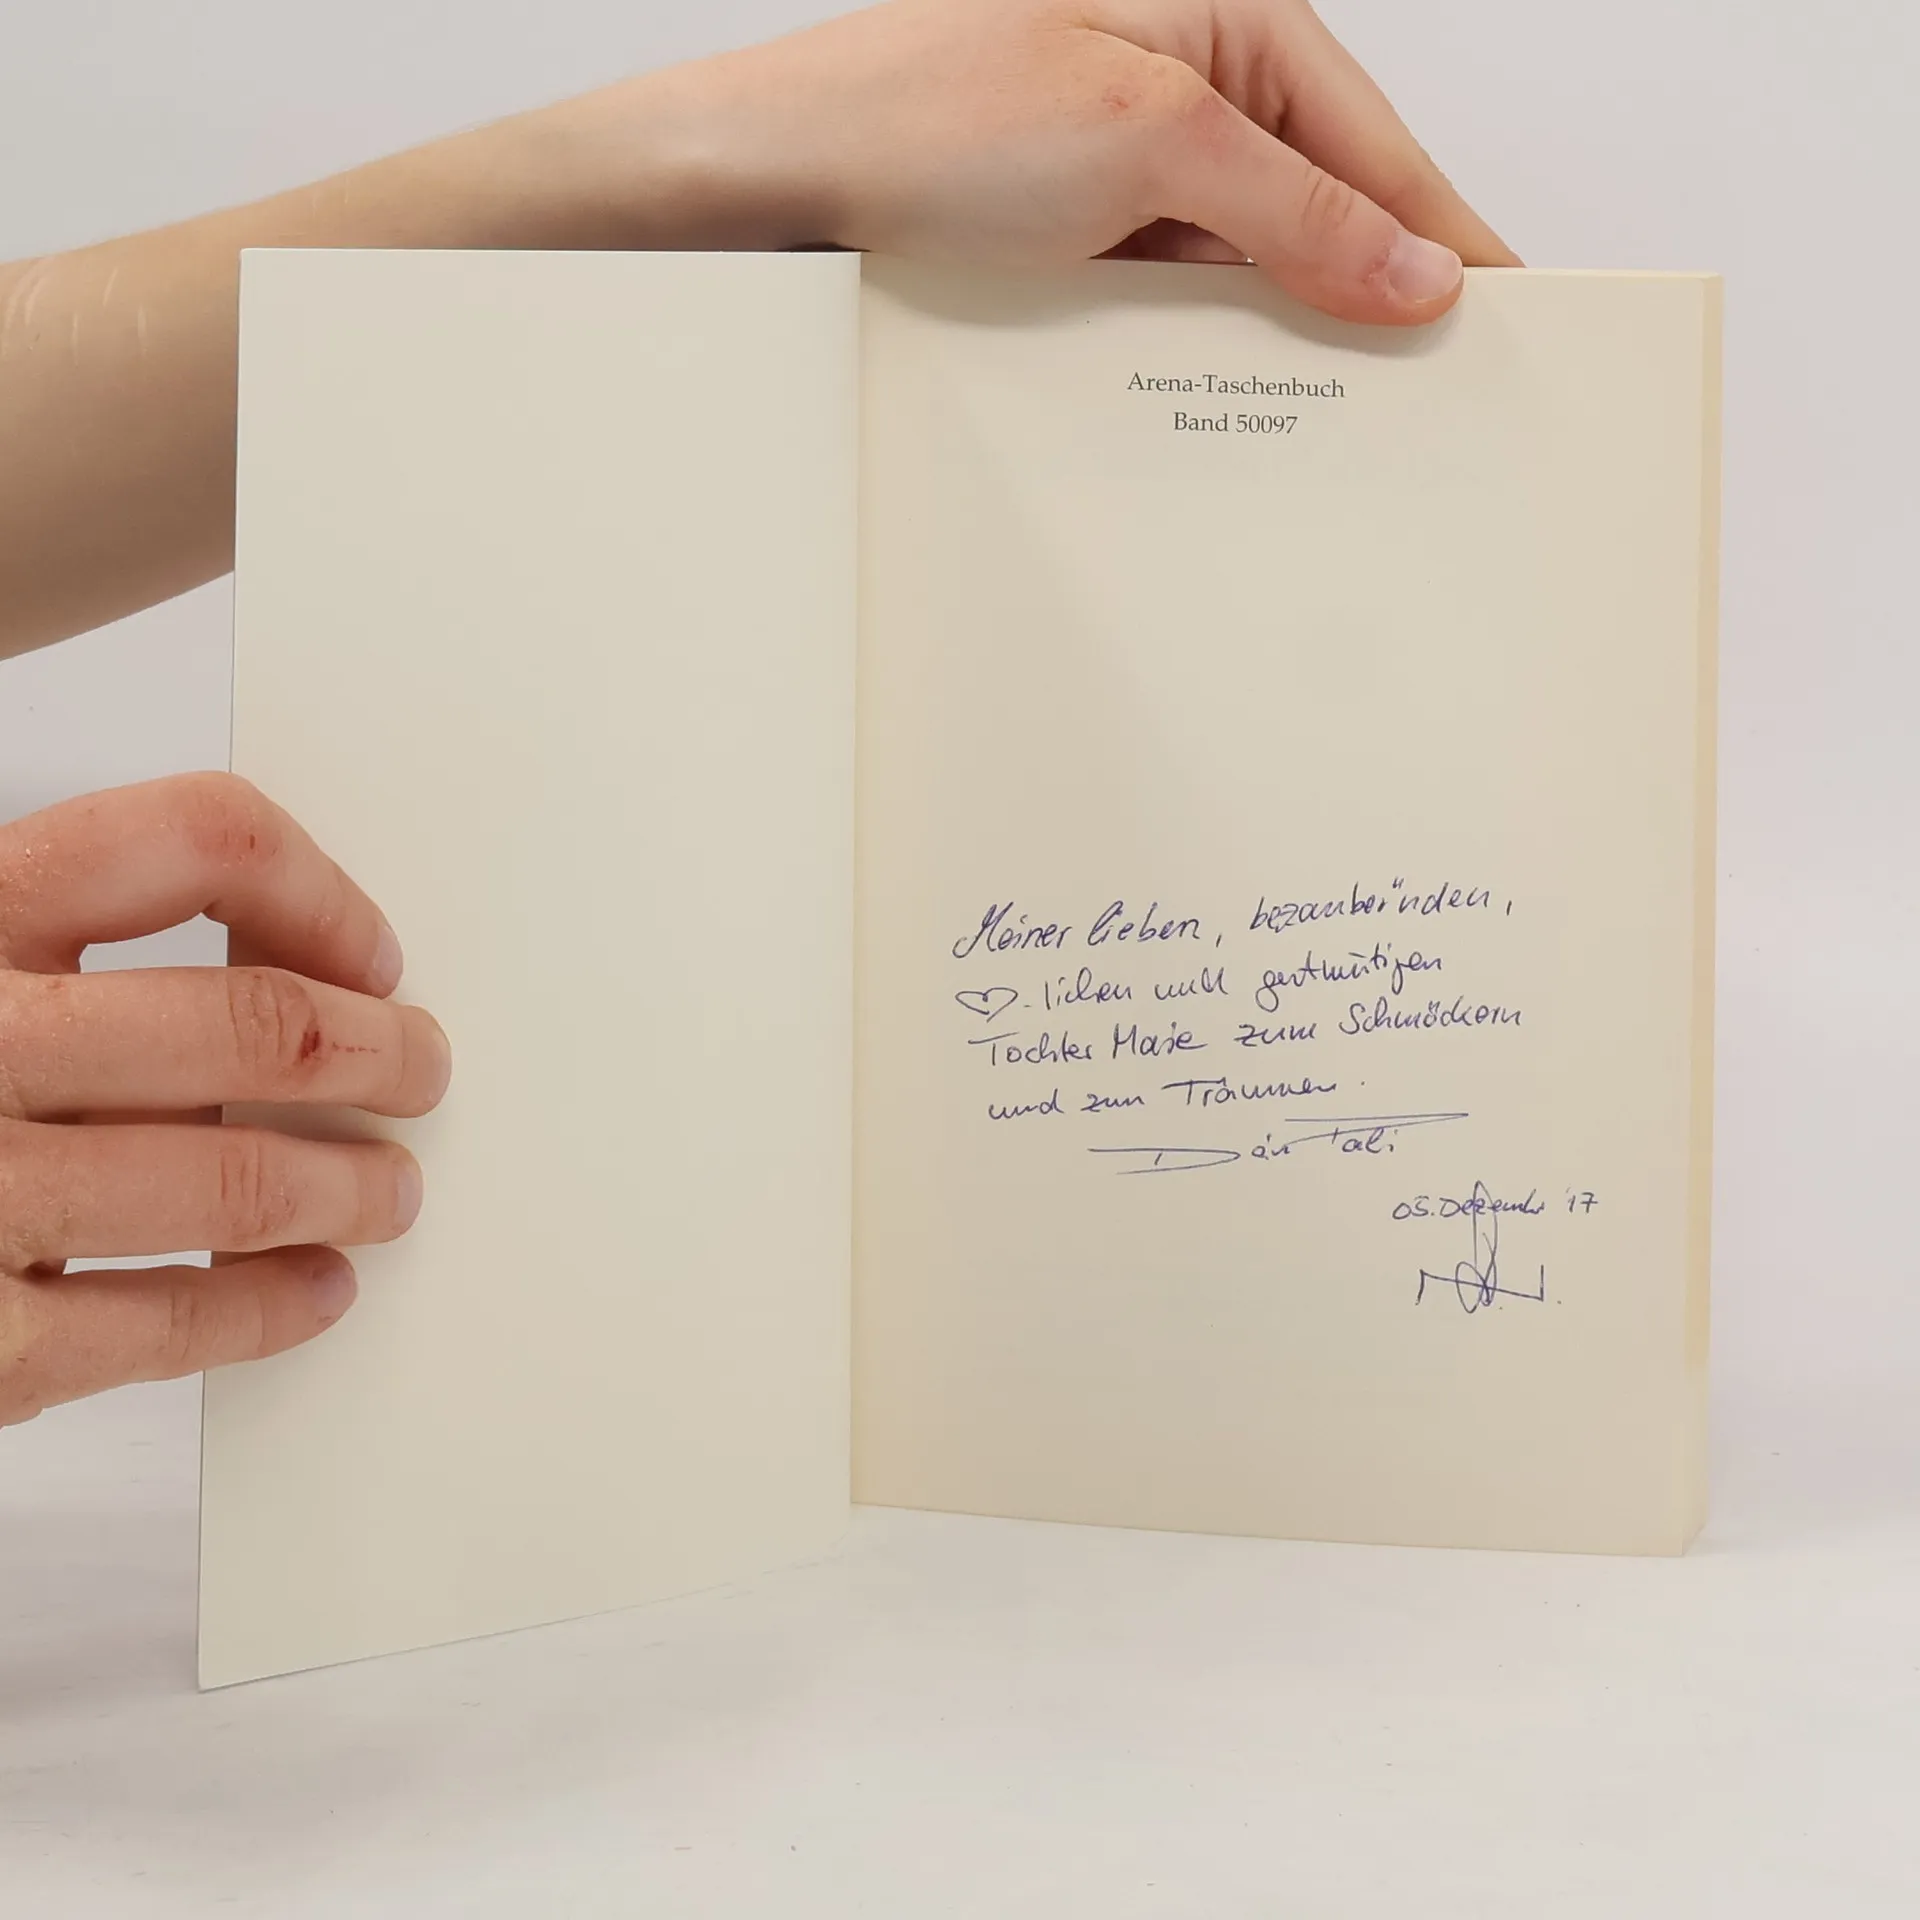 Arena-Taschenbuch
Band 50097
Meiner lieben, bezaubernden,
♡-lichen und gutmütigen
Tochter Marie zum Schmöckern
und zum Träumen.
Dein Pali
05. Dezember '17